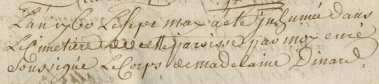 L'an 1760 le sept may a eté inhumée dans
le cimetiere de cette paroisse par moy curé
soussigné le corps de madelaine Dinard